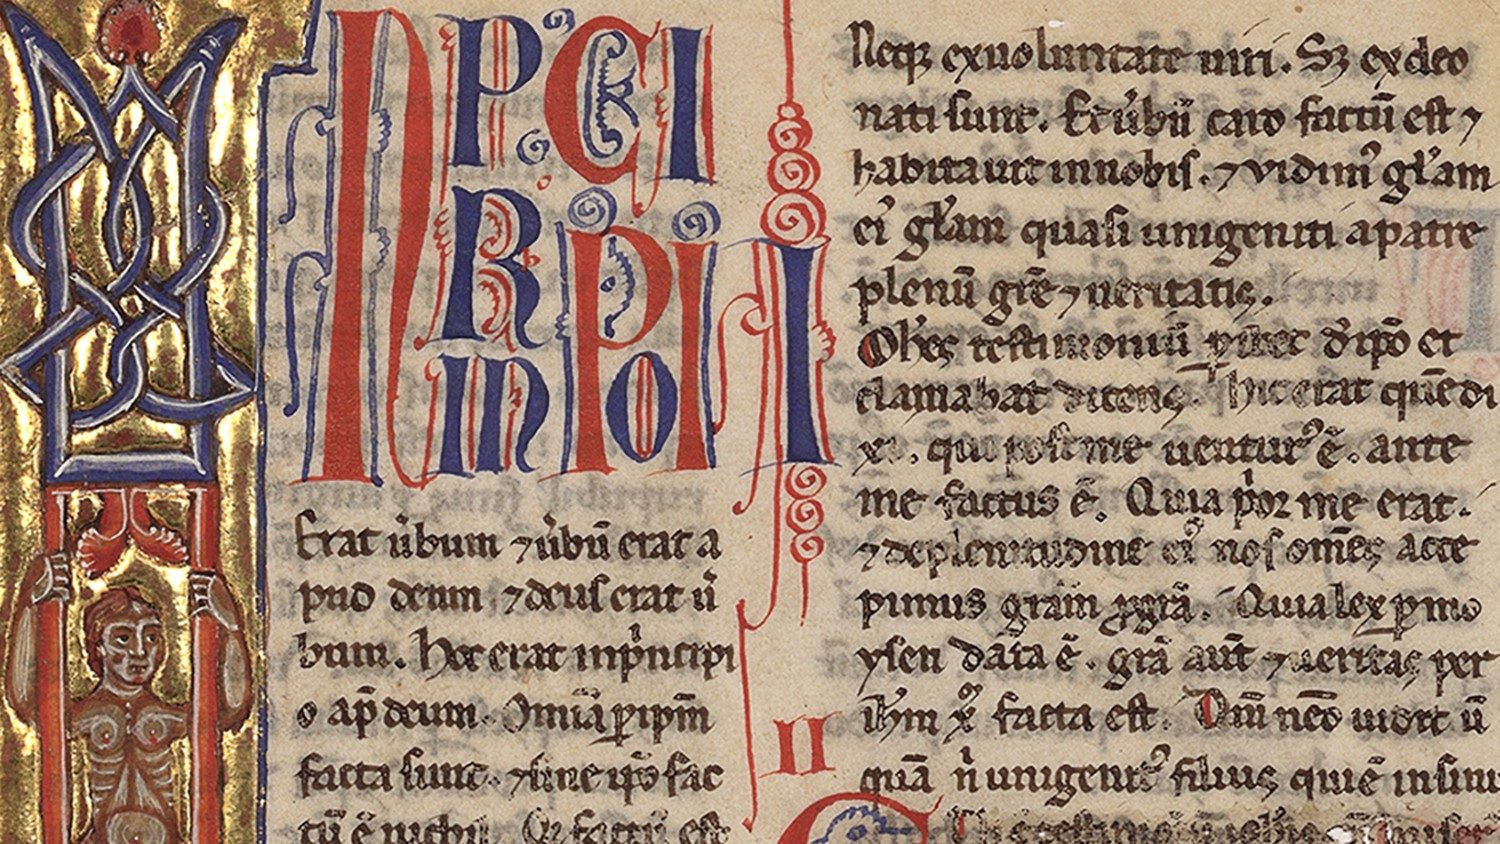 NPCI
RPI
INO
Erat ūbum ⁊ ūbū erat a
pud deum ⁊ deus erat ū
bum. Hoc erat in pͥncipi
o ap̄ deum. Omīa ꝑ ip̄m
facta sunt. ⁊ sine ip̄o fac
tū ē nichil. Qͩ factū est
I
II
Neqꝫ ex uoluntate uiri. Sꝫ ex deo
nati sunt. Et ūbū caro factū est ⁊
habitauit in nobis. ⁊ vidimꝰ gl̄am
eiꝰ gl̄am quasi unigeniti a patre
plenū grē ⁊ ueritatis.
Ioh̄es testimoniū ꝑhibet d̄ ip̄o et
clamabat dicens. Hic erat quē di
xi. qui post me uenturꝰ ē. ante
me factus ē. Quia pͥor me erat.
⁊ de plenitudine eiꝰ nos om̄es acce
pimus grām ꝓ grā. Quia lex ꝑ mo
ysen data ē. grā aut̄ ⁊ ueritas per
ih̄m xp̄m facta est. Dm̄ nēo uidit ū
quā n̄ unigenitꝰ filius qui ē in sinu